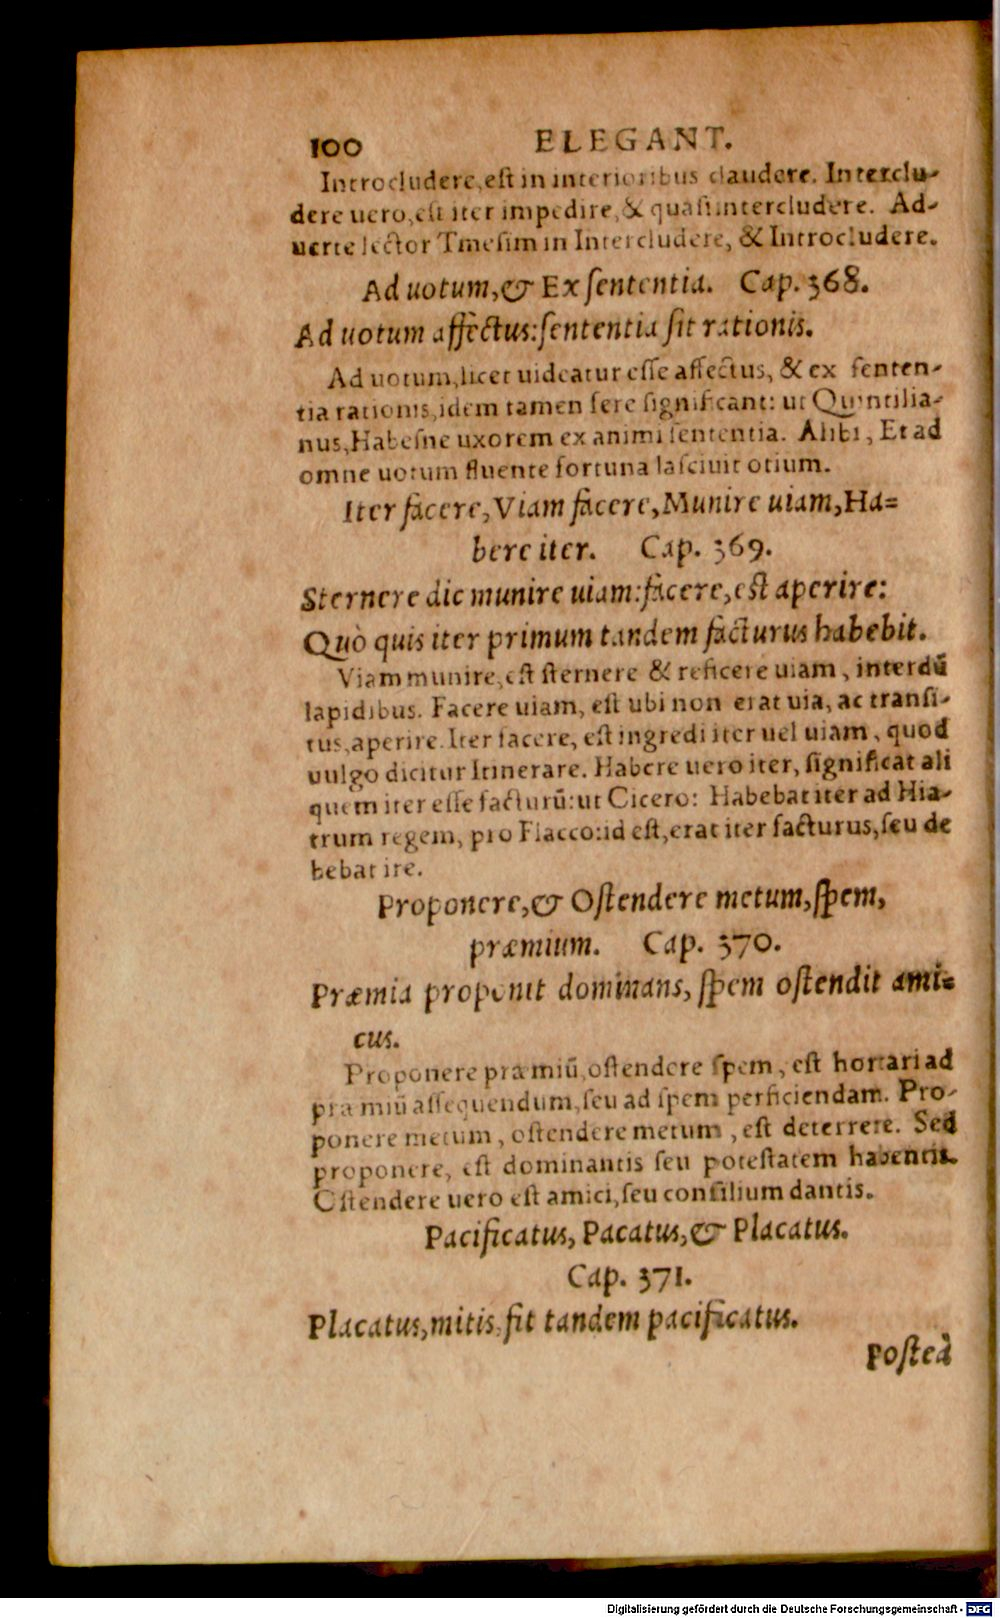 100 ELEGANT.
Introcludere, est in interioribus claudere. Interclu-
dere uero, est iter impedire, & quasi intercludere. Ad-
uerte lector Tmesim in Intercludere, & Introcludere.
Ad uotum, & Ex sententia. Cap. 368.
Ad uotum affectus: sententia sit rationis.
Ad uotum, licet uideatur esse affectus, & ex senten-
tia rationis, idem tamen fere significant: ut Quintilia-
nus, Habesne uxorem ex animi sententia. Alibi, Et ad
omne uotum fluente fortuna lasciuit otium.
Iter facere, Viam facere, Munire uiam, Ha=
bere iter. Cap. 369.
Sternere dic munire uiam: facere, est aperire:
Quò quis iter primum tandem facturus habebit.
Viam munire, est sternere & reficere uiam, interdũ
lapidibus. Facere uiam, est ubi non erat uia, ac transi-
tus, aperire. Iter facere, est ingredi iter uel uiam, quod
uulgo dicitur Itinerare. Habere uero iter, significat ali
quem iter esse facturũ: ut Cicero: Habebat iter ad Hia-
trum regem, pro Flacco: id est, erat iter facturus, seu de
bebat ire.
Proponere, & Ostendere metum, spem,
præmium. Cap. 370.
Præmia proponit dominans, spem ostendit ami=
cus.
Proponere præmiũ, ostendere spem, est hortari ad
præmiũ assequendum, seu ad spem perficiendam. Pro-
ponere metum, ostendere metum, est deterrere. Sed
proponere, est dominantis seu potestatem habentis.
Ostendere uero est amici, seu consilium dantis.
Pacificatus, Pacatus, & Placatus.
Cap. 371.
Placatus, mitis, fit tandem pacificatus.
Posteà
Digitalisierung gefördert durch die Deutsche Forschungsgemeinschaft - DFG